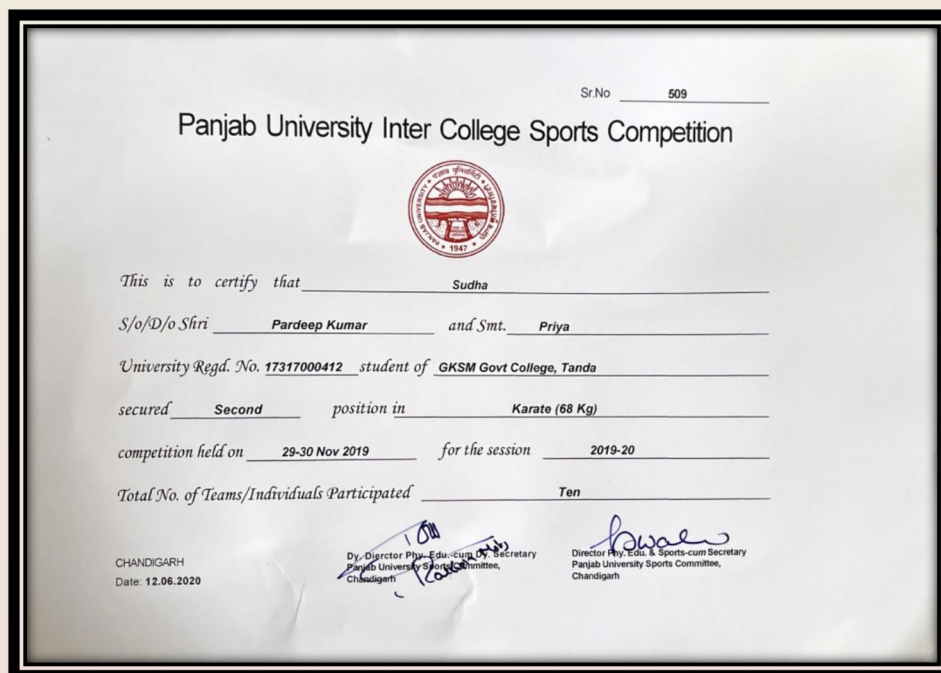 Sr.No 509
Panjab University Inter College Sports Competition
PANJAB UNIVERSITY
1947
This is to certify that Sudha
S/o/D/o Shri Pardeep Kumar and Smt. Priya
University Regd. No. 17317000412 student of GKSM Govt College, Tanda
secured Second position in Karate (68 Kg)
competition held on 29-30 Nov 2019 for the session 2019-20
Total No. of Teams/Individuals Participated Ten
CHANDIGARH
Date: 12.06.2020
Dy. Dierctor Phy. Edu.-cum Dy. Secretary
Panjab University Sports Committee,
Chandigarh
Director Phy. Edu. & Sports-cum Secretary
Panjab University Sports Committee,
Chandigarh